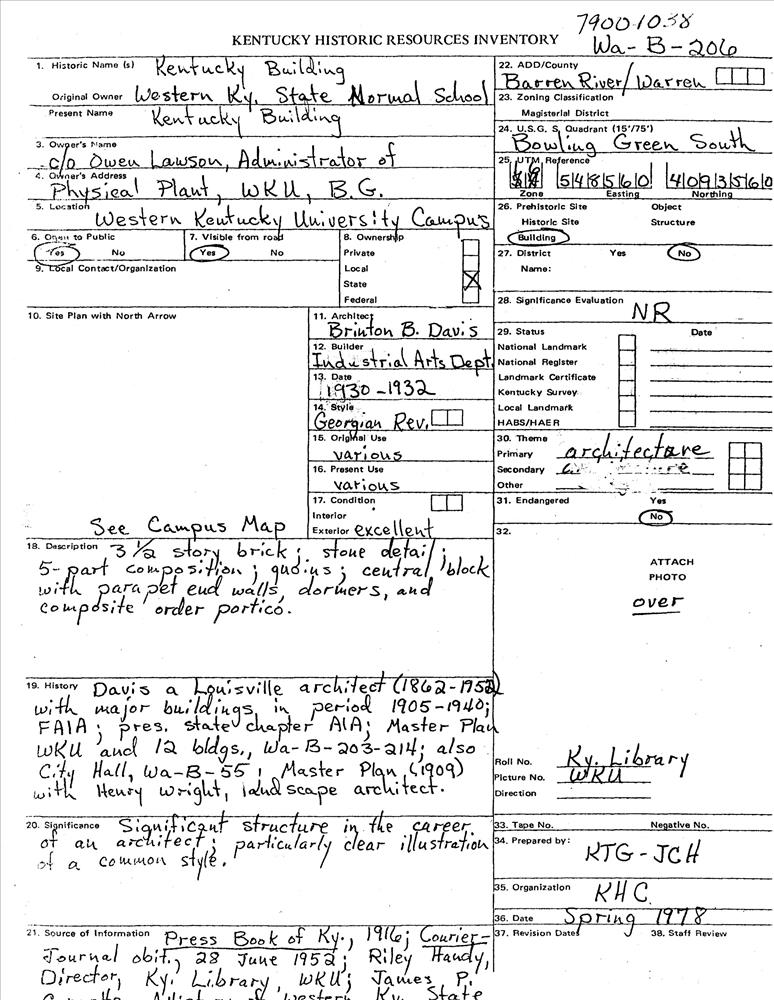 79001038
KENTUCKY HISTORIC RESOURCES INVENTORY
Wa-B-206
1. Historic Name (s) Kentucky Building
Original Owner Western Ky. State Normal School
Present Name Kentucky Building
3. Owner's Name
c/o Owen Lawson, Administrator of
4. Owner's Address
Physical Plant, WKU, B.G.
5. Location Western Kentucky University Campus
6. Open to Public
Yes No
7. Visible from road
Yes No
8. Ownership
Private
Local
State
Federal
9. Local Contact/Organization
10. Site Plan with North Arrow
See Campus Map
11. Architect
Brinton B. Davis
12. Builder
Industrial Arts Dept.
13. Date
1930-1932
14. Style
Georgian Rev.
15. Original Use
various
16. Present Use
various
17. Condition
Interior
Exterior excellent
18. Description 3 1/2 story brick; stone detail;
5-part composition; quoins; central block
with parapet end walls, dormers, and
composite order portico.
19. History Davis a Louisville architect (1862-1952)
with major buildings in period 1905-1940;
FAIA; pres. state chapter AIA; Master Plan
WKU and 12 bldgs., Wa-B-203-214; also
City Hall, Wa-B-55; Master Plan (1909)
with Henry Wright, landscape architect.
20. Significance Significant structure in the career
of an architect; particularly clear illustration
of a common style.
21. Source of Information Press Book of Ky., 1916; Courier-
Journal obit., 28 June 1952; Riley Handy,
Director, Ky. Library, WKU; James P.
Western Ky. State
22. ADD/County
Barren River/Warren
23. Zoning Classification
Magisterial District
24. U.S.G. S. Quadrant (15'/75')
Bowling Green South
25. UTM Reference
548560 4093560
Zone Easting Northing
26. Prehistoric Site Object
Historic Site Structure
Building
27. District Yes No
Name:
28. Significance Evaluation
NR
29. Status Date
National Landmark
National Register
Landmark Certificate
Kentucky Survey
Local Landmark
HABS/HAER
30. Theme
Primary architecture
Secondary
Other
31. Endangered Yes
No
32.
ATTACH
PHOTO
over
Roll No. Ky. Library
Picture No. WKU
Direction
33. Tape No. Negative No.
34. Prepared by:
KTG-JCH
35. Organization
KHC
36. Date Spring 1978
37. Revision Dates 38. Staff Review